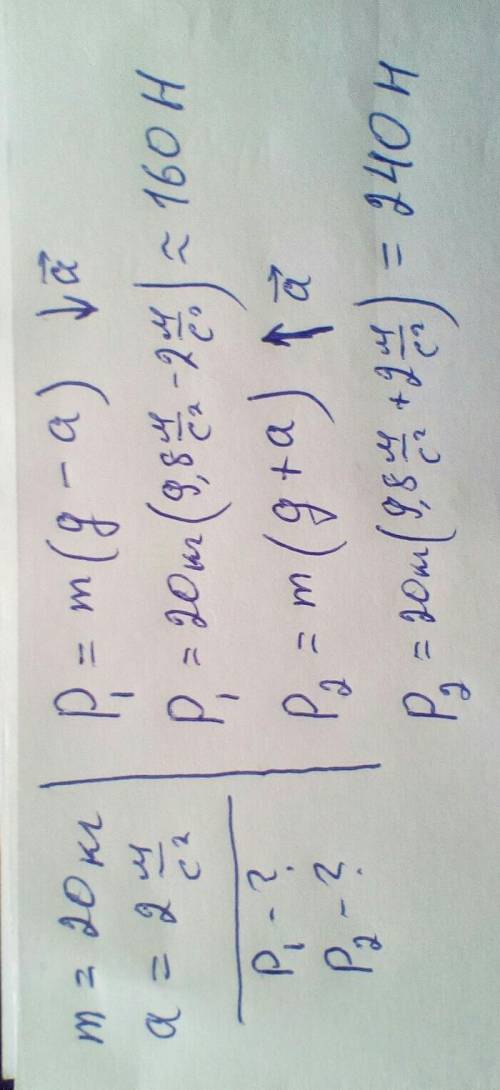 m = 20 кг
a = 2 м/с²
P₁ - ?
P₂ - ?
P₁ = m(g - a) ↓a⃗
P₁ = 20кг(9,8 м/с² - 2 м/с²) ≈ 160 Н
P₂ = m(g + a) ↑a⃗
P₂ = 20кг(9,8 м/с² + 2 м/с²) = 240 Н